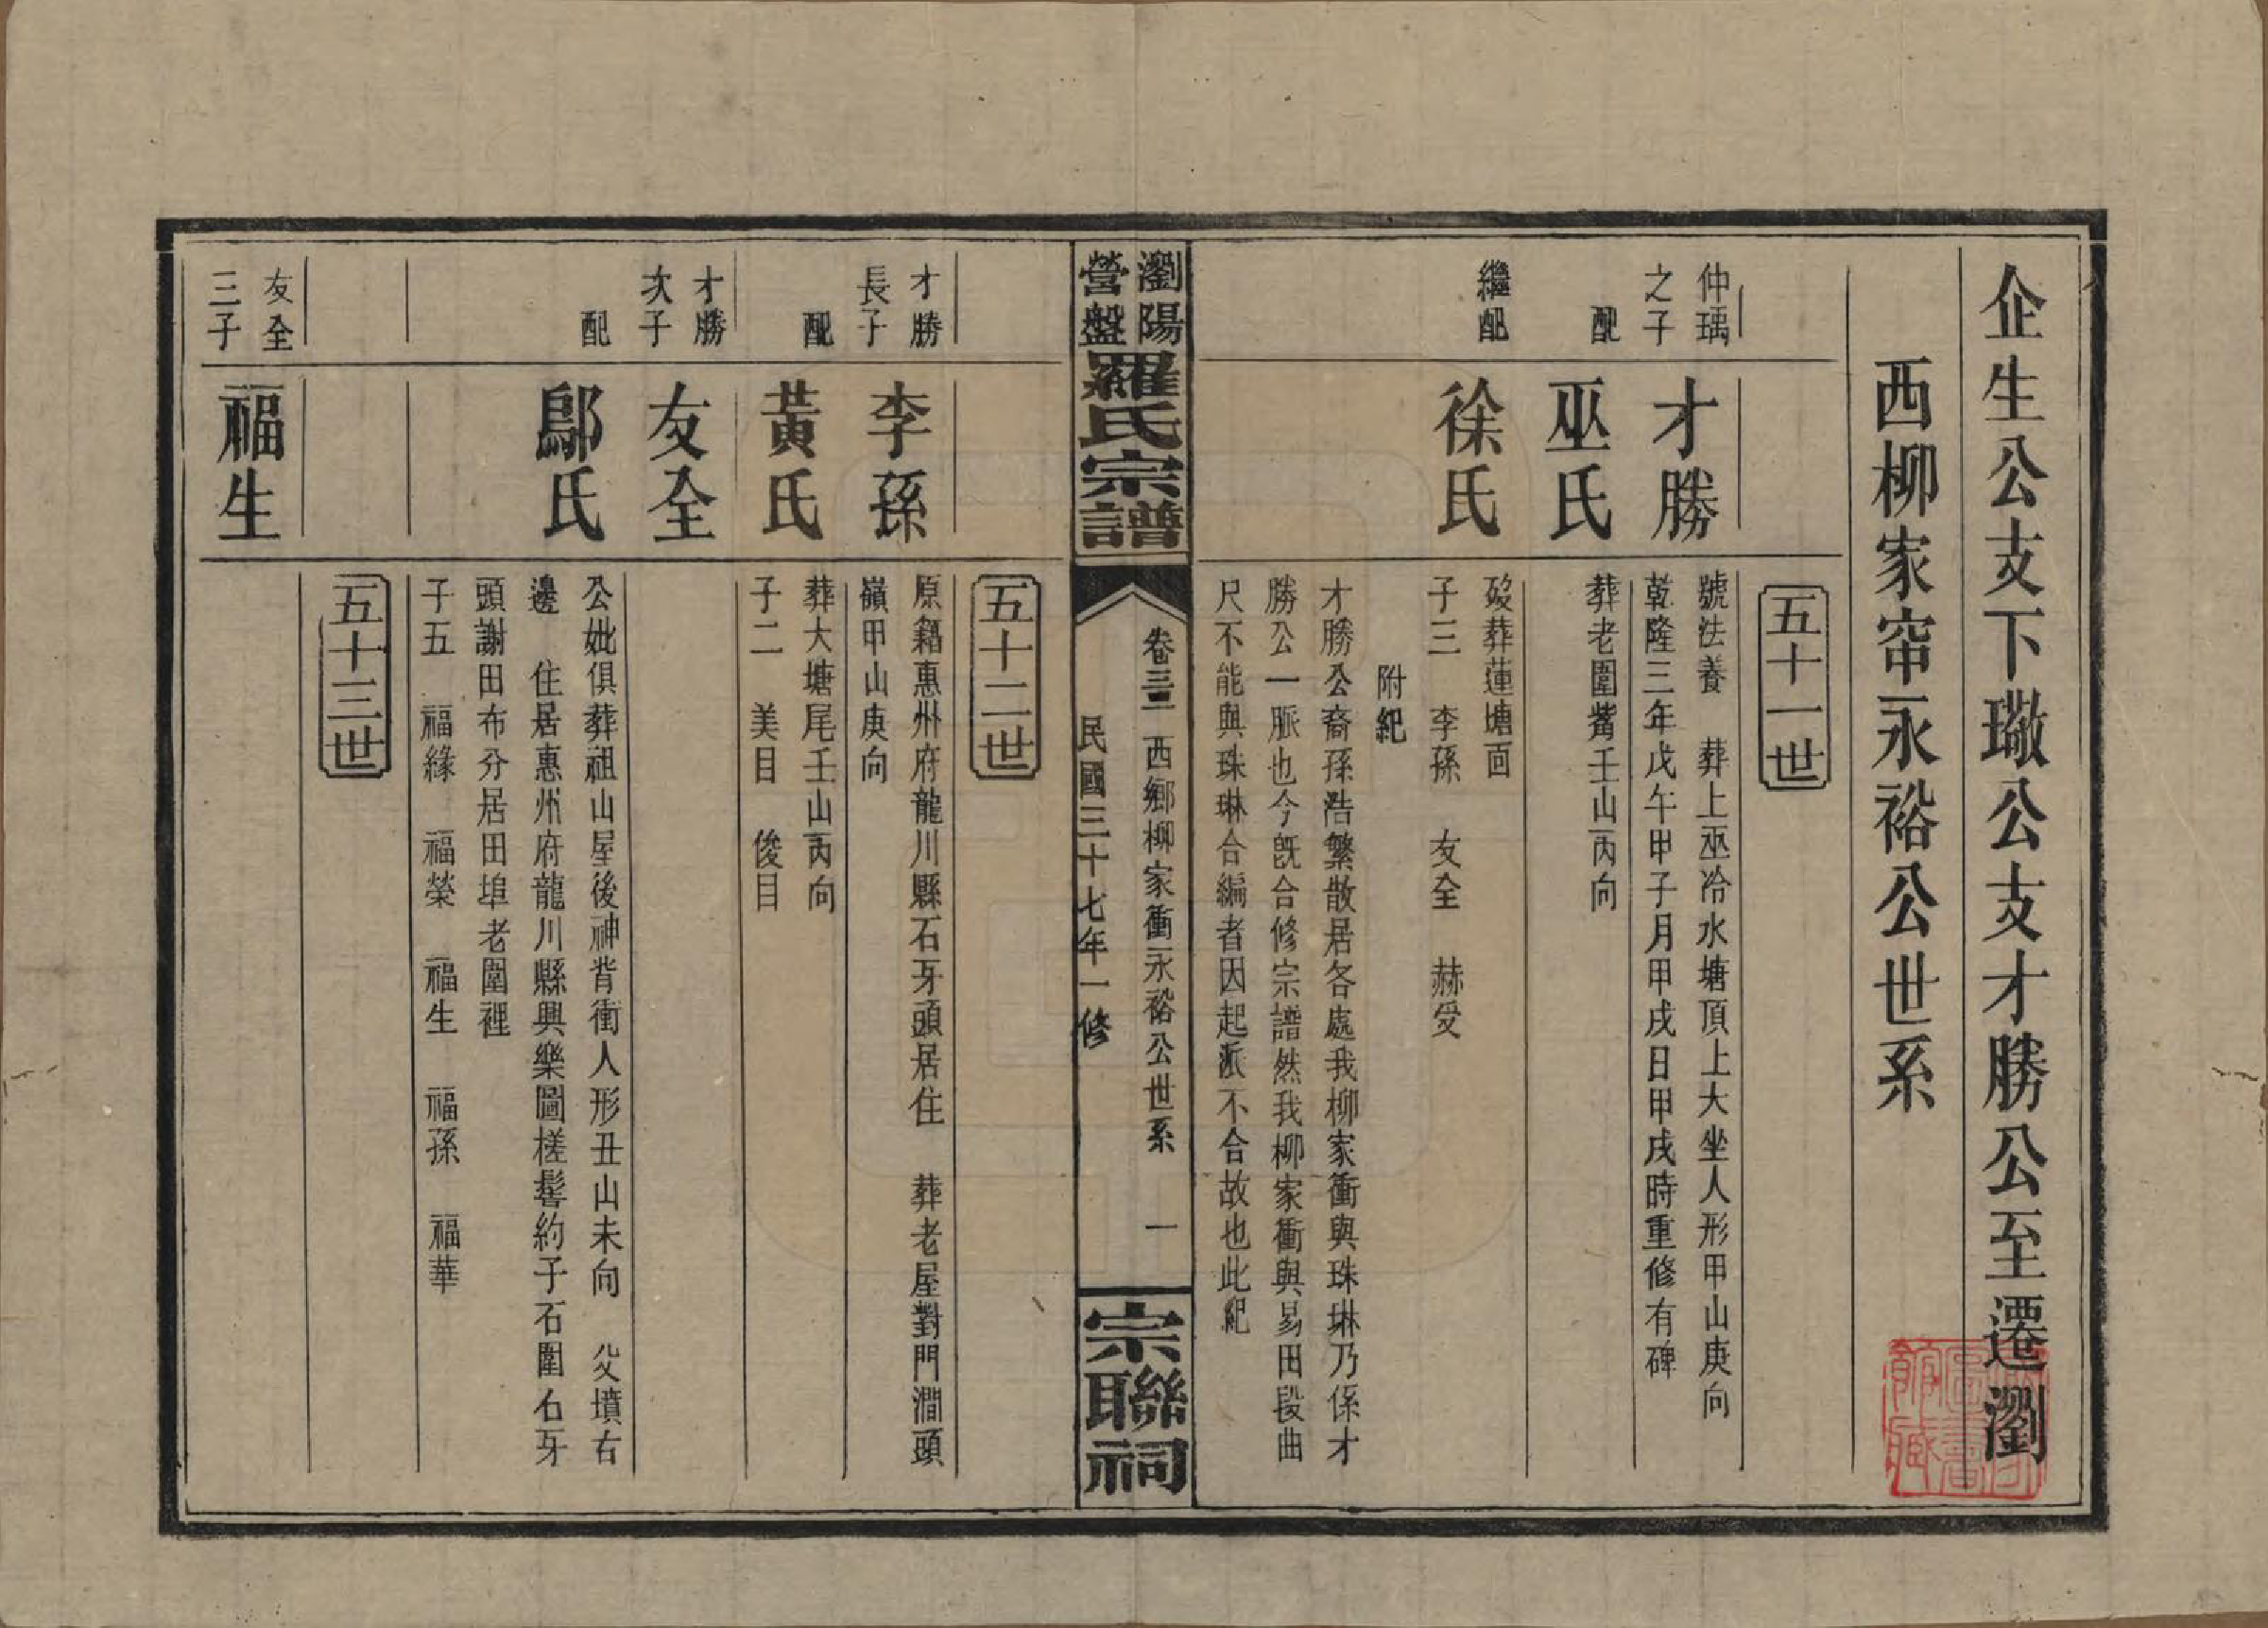 企生公支下璥公支才勝公至遷瀏
西柳家帘永裕公世系
五十一世
仲瑀
之子
才勝
號法養 葬上巫冷水塘頂上大坐人形甲山庚向
乾隆三年戊午甲子月甲戌日甲戌時重修有碑
配
巫氏
葬老圍觜壬山丙向
繼配
徐氏
歿葬蓮塘面
子三 李孫 友全 赫受
附紀
才勝公裔孫浩繁散居各處我柳家衝與珠琳乃係才
勝公一脈也今既合修宗譜然我柳家衝與易田段曲
尺不能與珠琳合編者因起派不合故也此紀
瀏陽
營盤
羅氏宗譜
卷三 西鄉柳家衝永裕公世系 一
民國三十七年一修
宗聯祠
五十二世
才勝
長子
李孫
原籍惠州府龍川縣石牙頭居住 葬老屋對門澗頭
嶺甲山庚向
配
黃氏
葬大塘尾壬山丙向
子二 美目 俊目
才勝
次子
友全
配
鄔氏
公妣俱葬祖山屋後神背衝人形丑山未向 父墳右
邊 住居惠州府龍川縣興樂圖槎髻約子石圍石牙
頭謝田布分居田埠老圍裡
子五 福緣 福榮 福生 福孫 福華
五十三世
友全
三子
福生